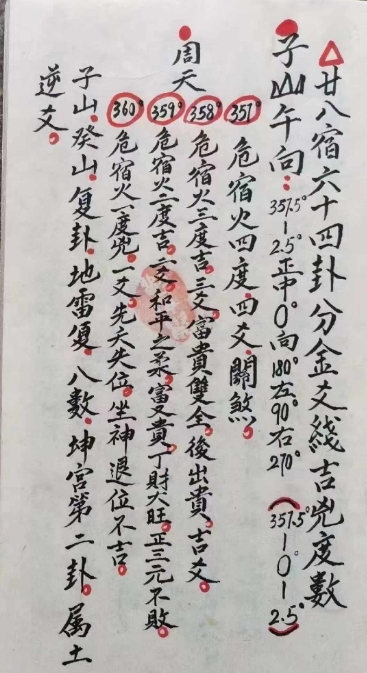 廿八宿六十四卦分金爻綫吉兇度數
子山午向：357.5°-2.5°正中0°向180°左90°右270°（357.5°-0°-2.5°）
周天
357° 危宿火四度，四爻，關煞。
358° 危宿火三度吉，三爻，富貴雙全，後出貴，吉爻。
359° 危宿火二度吉，二爻，和平之柔，富又貴，丁財大旺，正三元不敗。
360° 危宿火一度兇，一爻，先夭失位，坐神退位不吉。
子山，癸山，复卦，地雷復，八數，坤宮第二卦，属土
逆爻。